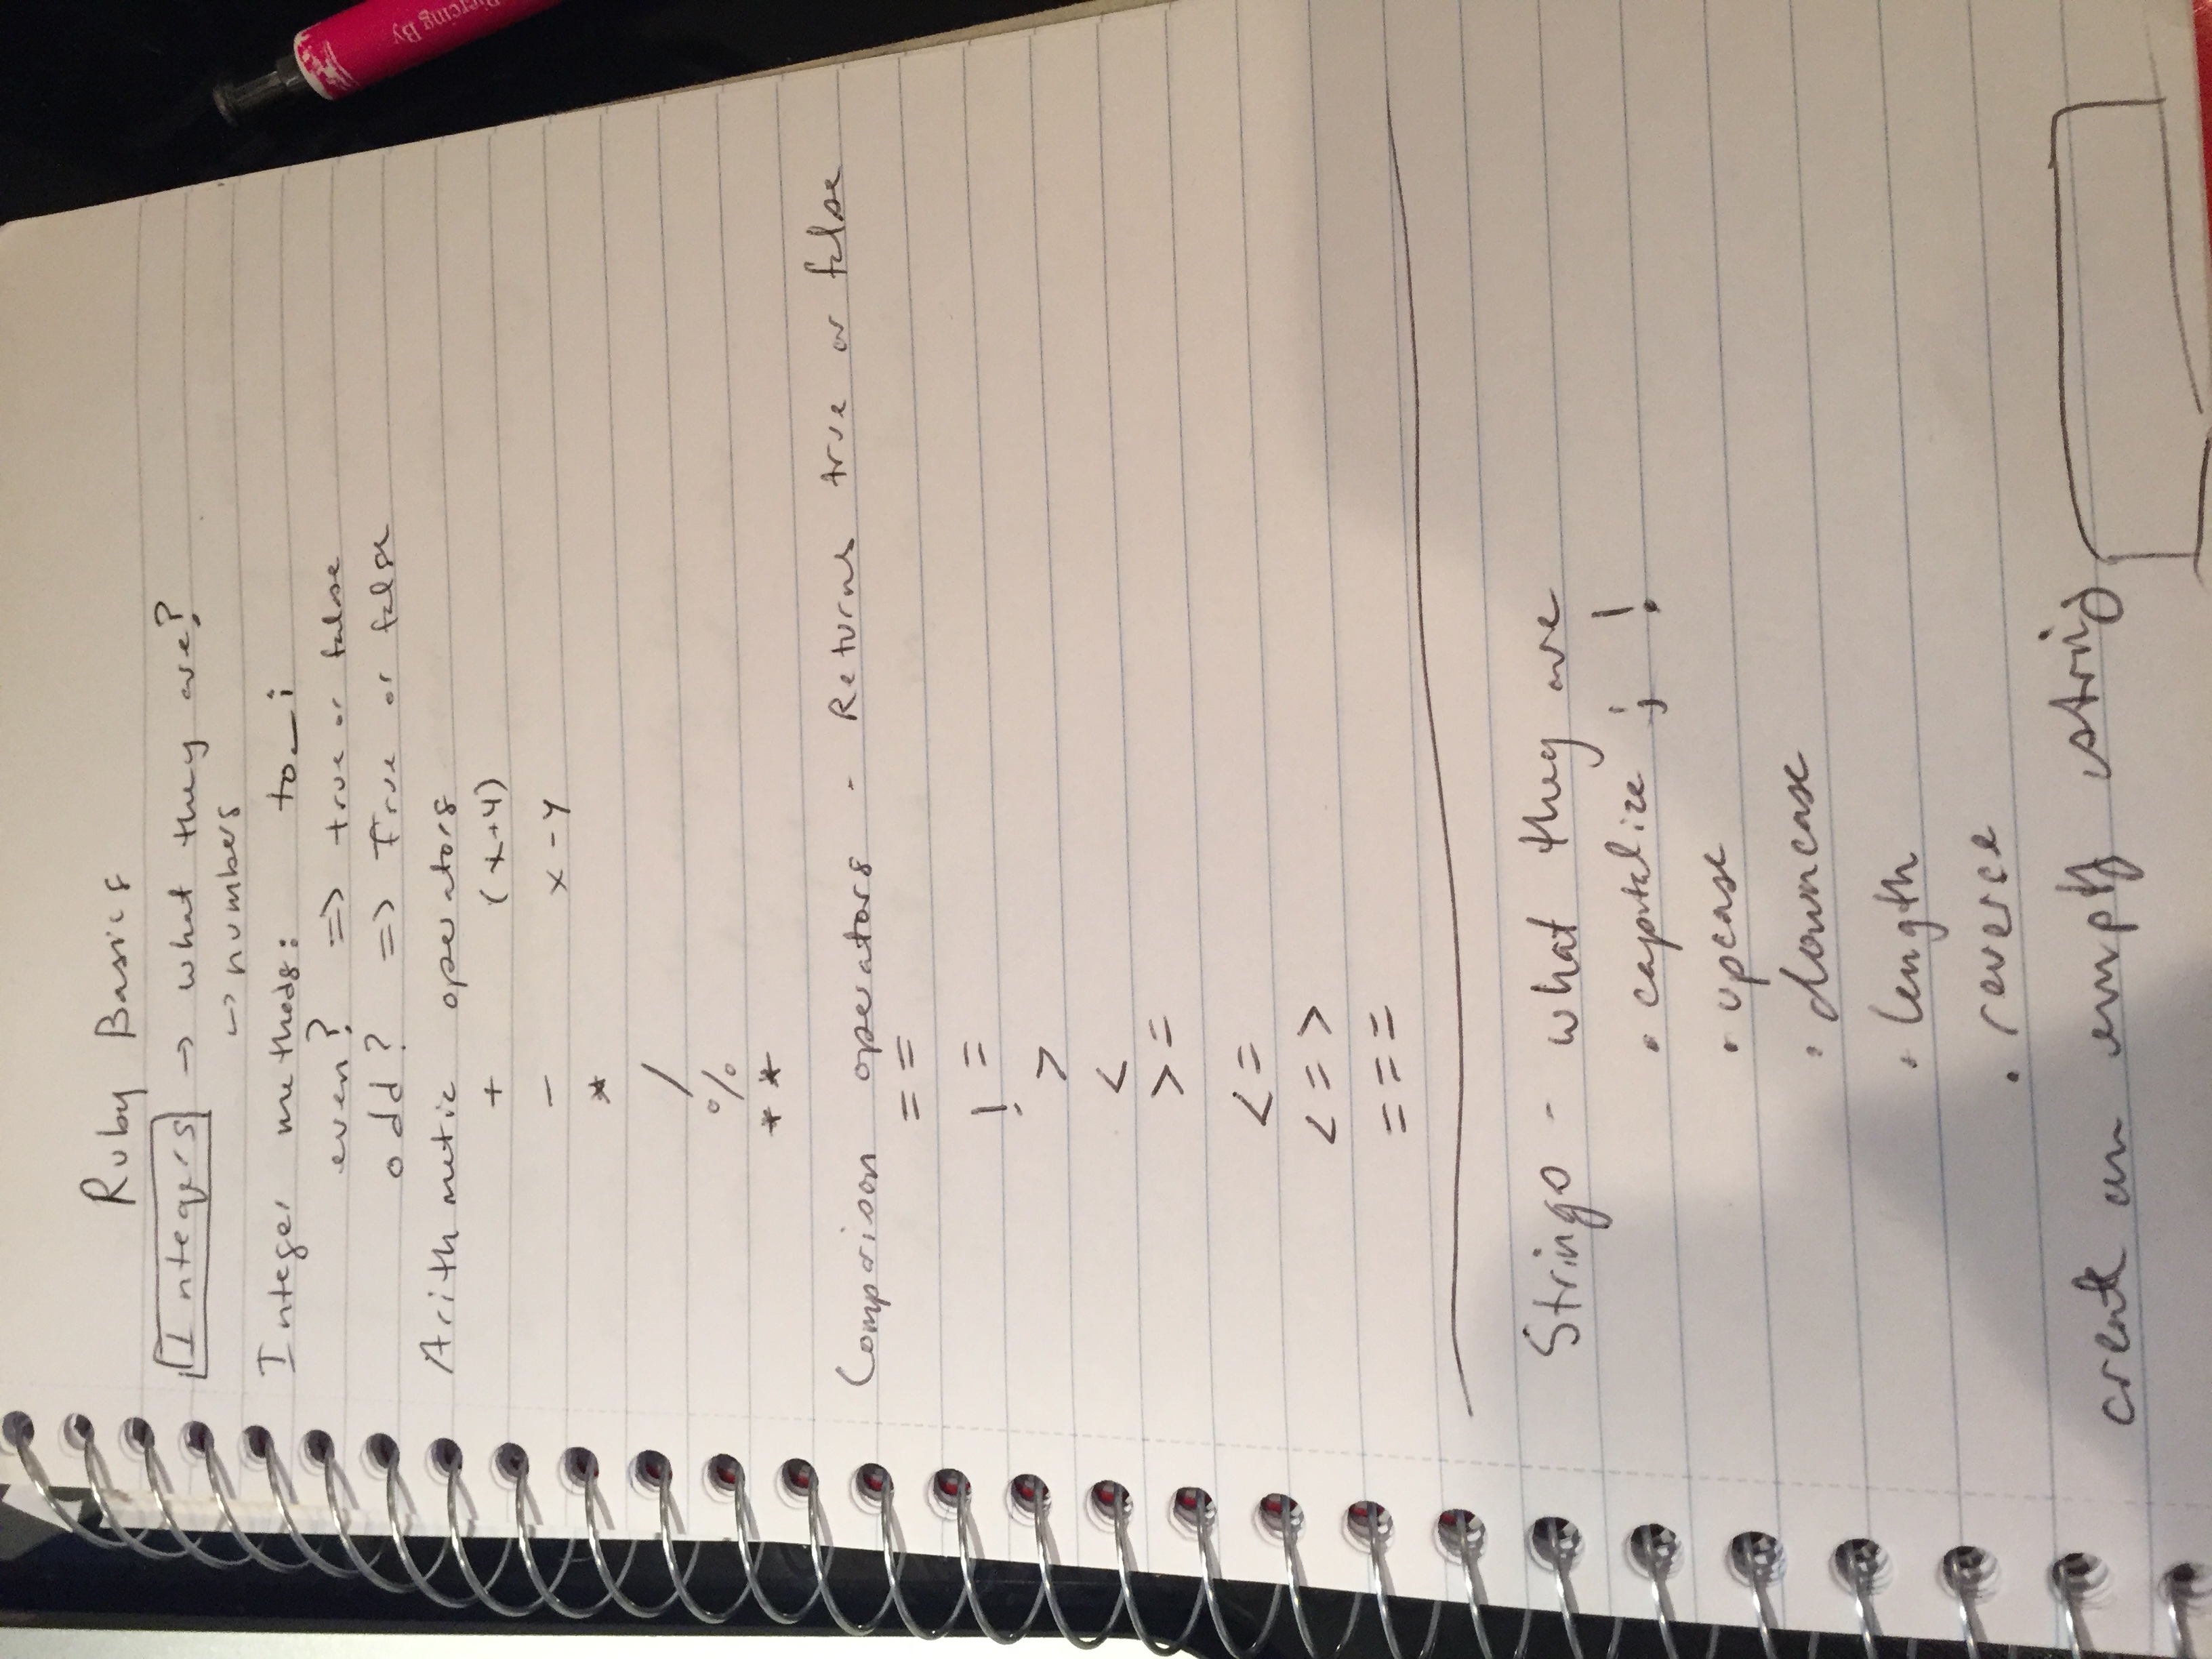 Ruby Basics
Integers → what they are?
↳ numbers
Integer methods: to_i
even? => true or false
odd? => True or false
Arithmetic operators
+ (x+y)
- x-y
*
/
%
**
Comparison operators - Returns true or false
==
!=
>
<
>=
<=
<=>
===
Strings - what they are
• capitalize ; !
• upcase
• downcase
• length
• reverse
create an empty string
Piercing By